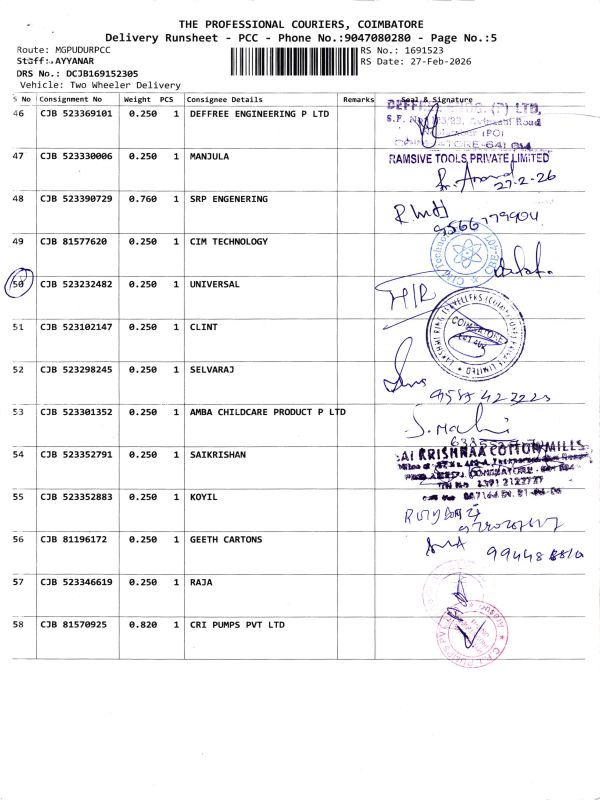 THE PROFESSIONAL COURIERS, COIMBATORE
Delivery Runsheet - PCC - Phone No.:9047080280 - Page No.:5
Route: MGPUDURPCC
RS No.: 1691523
Staff: AYYANAR
RS Date: 27-Feb-2026
DRS No.: DCJB169152305
Vehicle: Two Wheeler Delivery
S No Consignment No Weight PCS Consignee Details Remarks Seal & Signature
46 CJB 523369101 0.250 1 DEFFREE ENGINEERING P LTD
47 CJB 523330006 0.250 1 MANJULA RAMSIVE TOOLS PRIVATE LIMITED
27-2-26
48 CJB 523390729 0.760 1 SRP ENGENERING
9566779904
49 CJB 81577620 0.250 1 CIM TECHNOLOGY
50 CJB 523232482 0.250 1 UNIVERSAL
H/R
51 CJB 523102147 0.250 1 CLINT
COIMBATORE
52 CJB 523298245 0.250 1 SELVARAJ
53 CJB 523301352 0.250 1 AMBA CHILDCARE PRODUCT P LTD
54 CJB 523352791 0.250 1 SAIKRISHAN SAI KRISHNAA COTTON MILLS
55 CJB 523352883 0.250 1 KOYIL
56 CJB 81196172 0.250 1 GEETH CARTONS
57 CJB 523346619 0.250 1 RAJA
58 CJB 81570925 0.820 1 CRI PUMPS PVT LTD